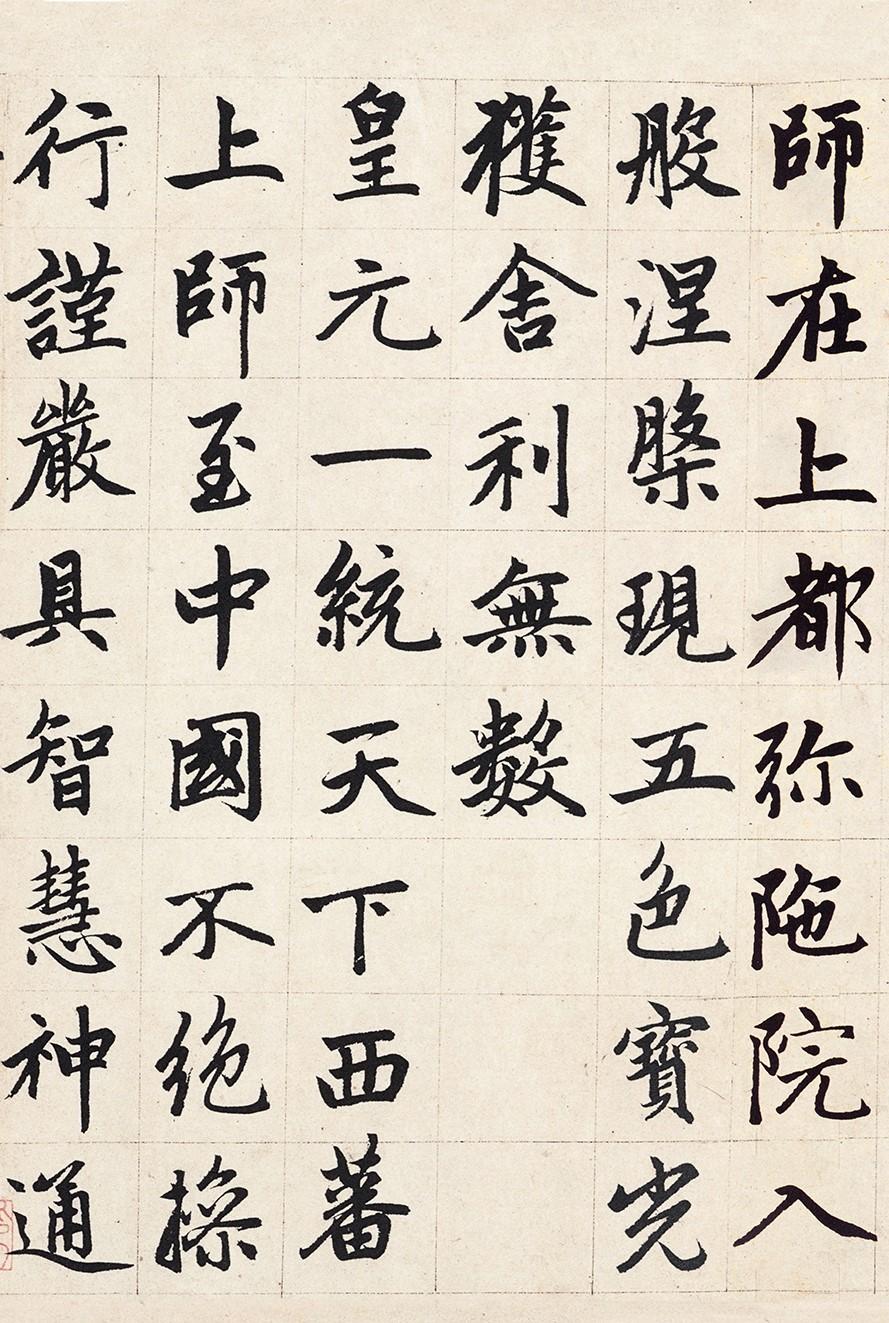 師在上都弥陁院入
般涅槃現五色寶光
獲舍利無數
皇元一統天下西蕃
上師至中國不絕操
行謹嚴具智慧神通